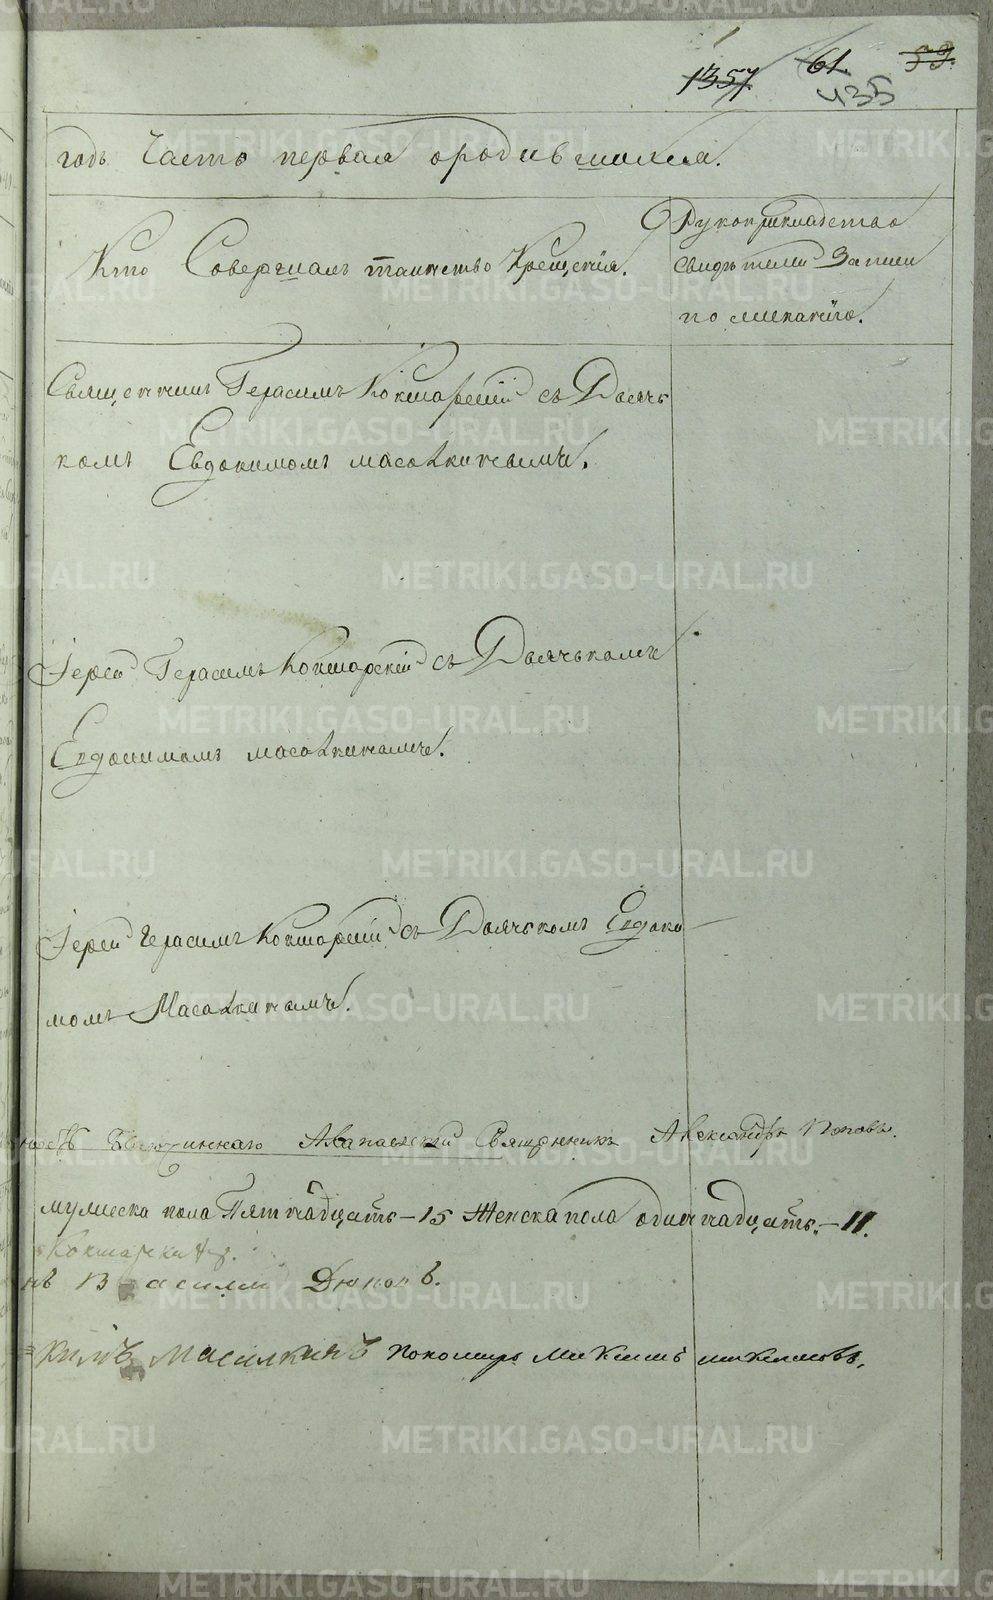 1357 61. 59.
435
годъ Часть первая ородившихся.
Кто Совершалъ таинство Крещенія.
Рукоприкладство
свидѣтелей Записи
по желанію.
Священникъ Герасимъ Кокшарскій съ Дьячь
комъ Евдокимомъ масалкинымъ.
Іерей Герасимъ Кокшарскій съ Дьячькомъ
Евдокимомъ масалкинымъ.
Іерей Герасимъ Кокшарскій съ Дьячькомъ Евдоки
момъ Масалкинымъ.
Священникъ Александръ Поповъ.
мужеска пола Пятнадцать - 15 Женска пола одиннадцать. - 11.
Кокшарскій
нъ Василий Дюповъ.
кимъ Масалкинъ пономарь
METRIKI.GASO-URAL.RU